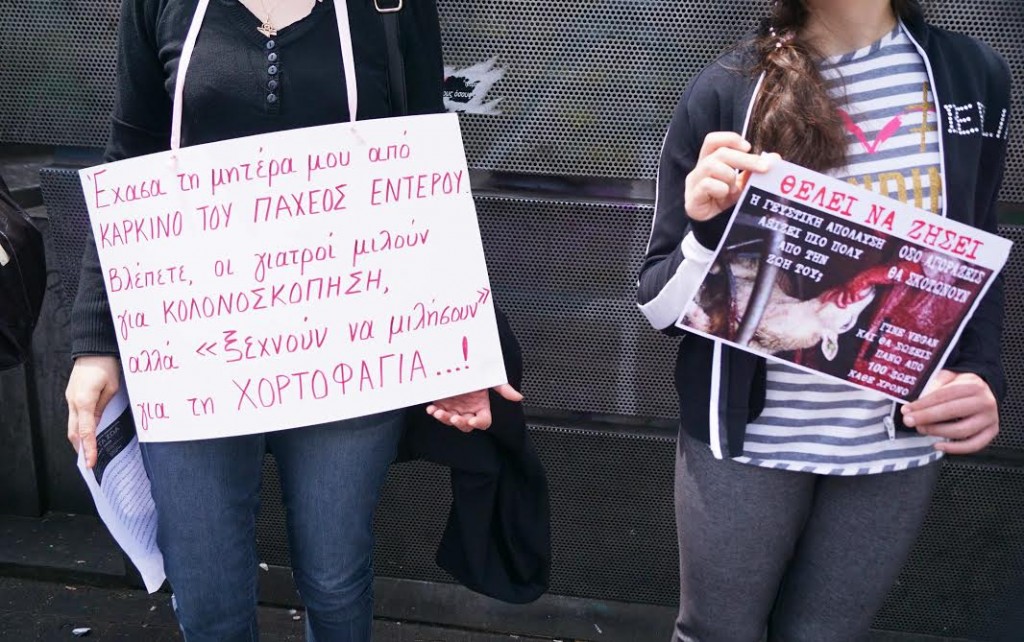 Έχασα τη μητέρα μου από
ΚΑΡΚΙΝΟ ΤΟΥ ΠΑΧΕΟΣ ΕΝΤΕΡΟΥ.
Βλέπετε, οι γιατροί μιλούν
για ΚΟΛΟΝΟΣΚΟΠΗΣΗ,
αλλά «ξεχνούν να μιλήσουν»
για τη ΧΟΡΤΟΦΑΓΙΑ...!
ΘΕΛΕΙ ΝΑ ΖΗΣΕΙ
Η ΓΕΥΣΤΙΚΗ ΑΠΟΛΑΥΣΗ
ΑΞΙΖΕΙ ΠΙΟ ΠΟΛΥ
ΑΠΟ ΤΗΝ
ΖΩΗ ΤΟΥ;
ΟΣΟ ΑΓΟΡΑΖΕΙΣ
ΘΑ ΣΚΟΤΩΝΟΥΝ
ΓΙΝΕ VEGAN
ΚΑΙ ΘΑ ΣΩΣΕΙΣ
ΠΑΝΩ ΑΠΟ
100 ΖΩΕΣ
ΚΑΘΕ ΧΡΟΝΟ